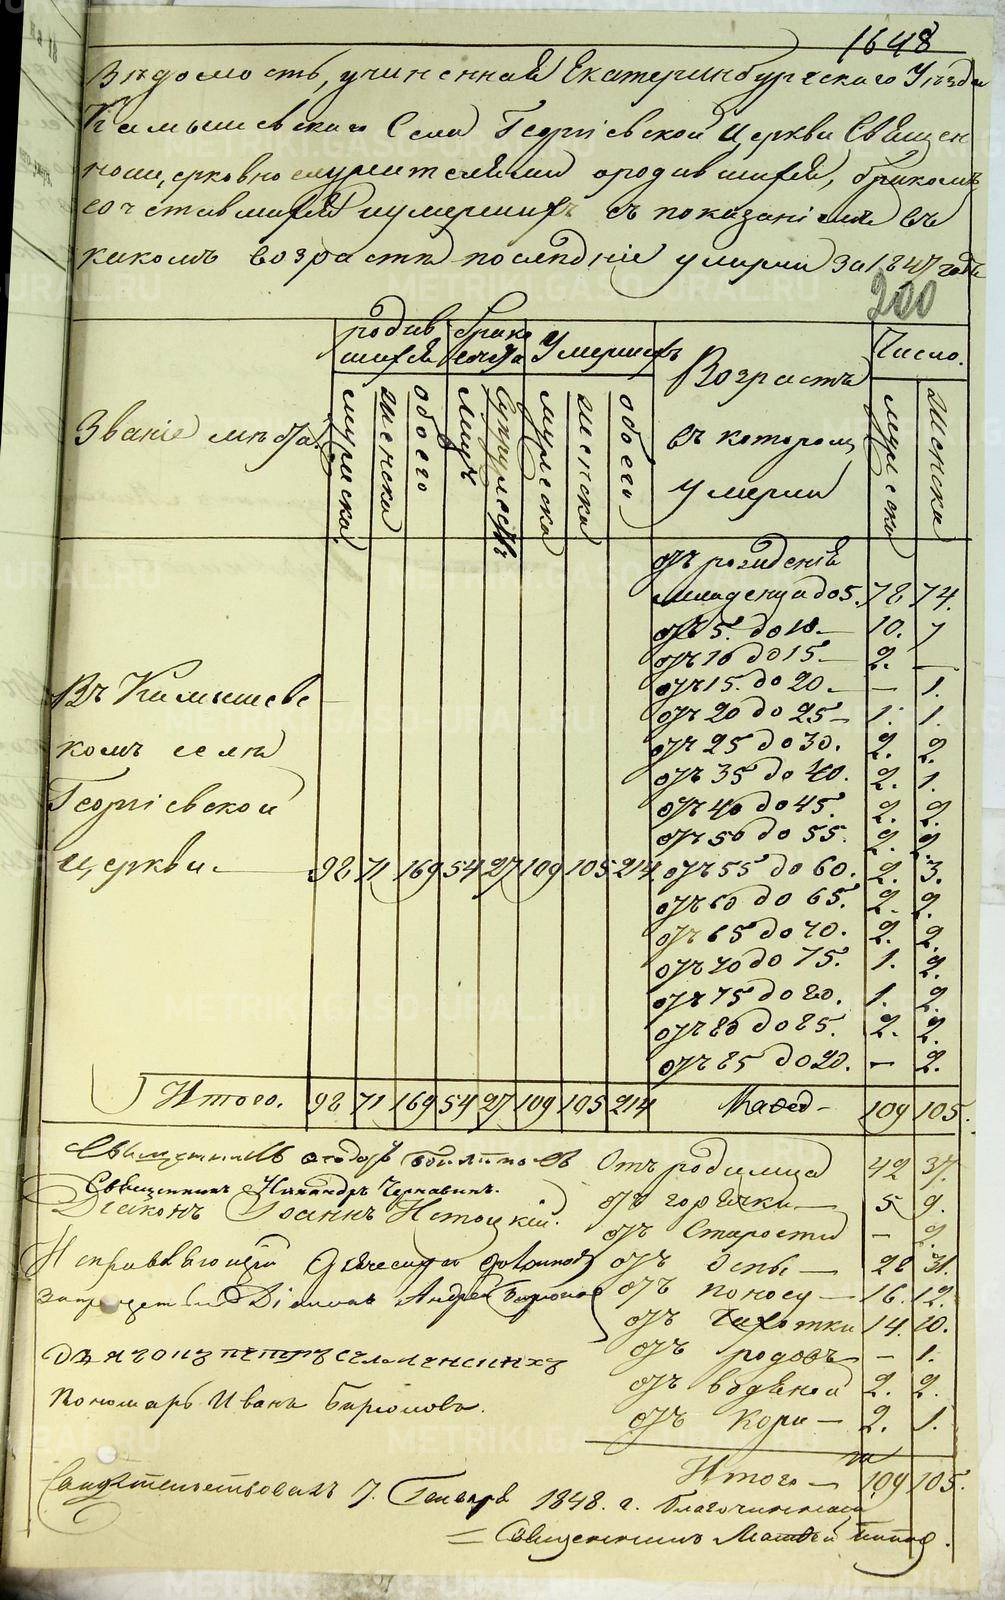 1648
Вѣдомость, учиненная Екатеринбургскаго Уѣзда
Камышевскаго Села Георгіевской Церкви Священ
ноцерковнослужителями о родившихся, бракомъ
сочетавшихся и умершихъ съ показаніемъ въ
какомъ возрастѣ послѣдніе умерли за 1847 годъ
200
Званіе мѣста.
родив
шихся
брако
соч
Умершихъ
Возрастъ
въ котором
умерли
Число.
мужеска
женска
обоего
лицъ
Супружествъ
мужеска
женска
обоего
мужеска
женска
отъ рожденія
младенца до 5. 78 74.
отъ 5. до 10. — 10. 7
отъ 10 до 15. — 2. —
отъ 15. до 20. — — 1.
отъ 20 до 25 — 1. 1.
отъ 25 до 30. 2. 2.
отъ 35 до 40. 2. 1.
отъ 40 до 45. 2. 2.
отъ 50 до 55. 2. 2.
отъ 55 до 60. 2. 3.
отъ 60 до 65. 2. 2.
отъ 65 до 70. 2. 2.
отъ 70 до 75. 1. 2.
отъ 75 до 80. 1. 2.
отъ 80 до 85. 2. 2.
отъ 85 до 90. — 2.
Въ Камышевс
комъ селѣ
Георгіевской
церкви — 98 71 169 54 27 109 105 214
Итого. 98 71 169 54 27 109 105 214 109 105.
Священникъ
Священникъ Никандръ Чернавинъ.
Діаконъ Іоаннъ Истоцкій.
Діаконъ Андрей
Пономарь Иванъ Баріоновъ.
Отъ родимца 42 37.
отъ горячки — 5 9.
отъ Старости — 2.
отъ оспы — 28 31.
отъ поносу — 16. 12.
отъ Чахотки 14. 10.
отъ родовъ — 1.
отъ водяной 2. 2.
отъ Кори — 2. 1.
Итого — 109 105.
Свидѣтельствовалъ 7. Генваря 1848. г. благочинный
= Священникъ Матвей Попов.
METRIKI.GASO-URAL.RU